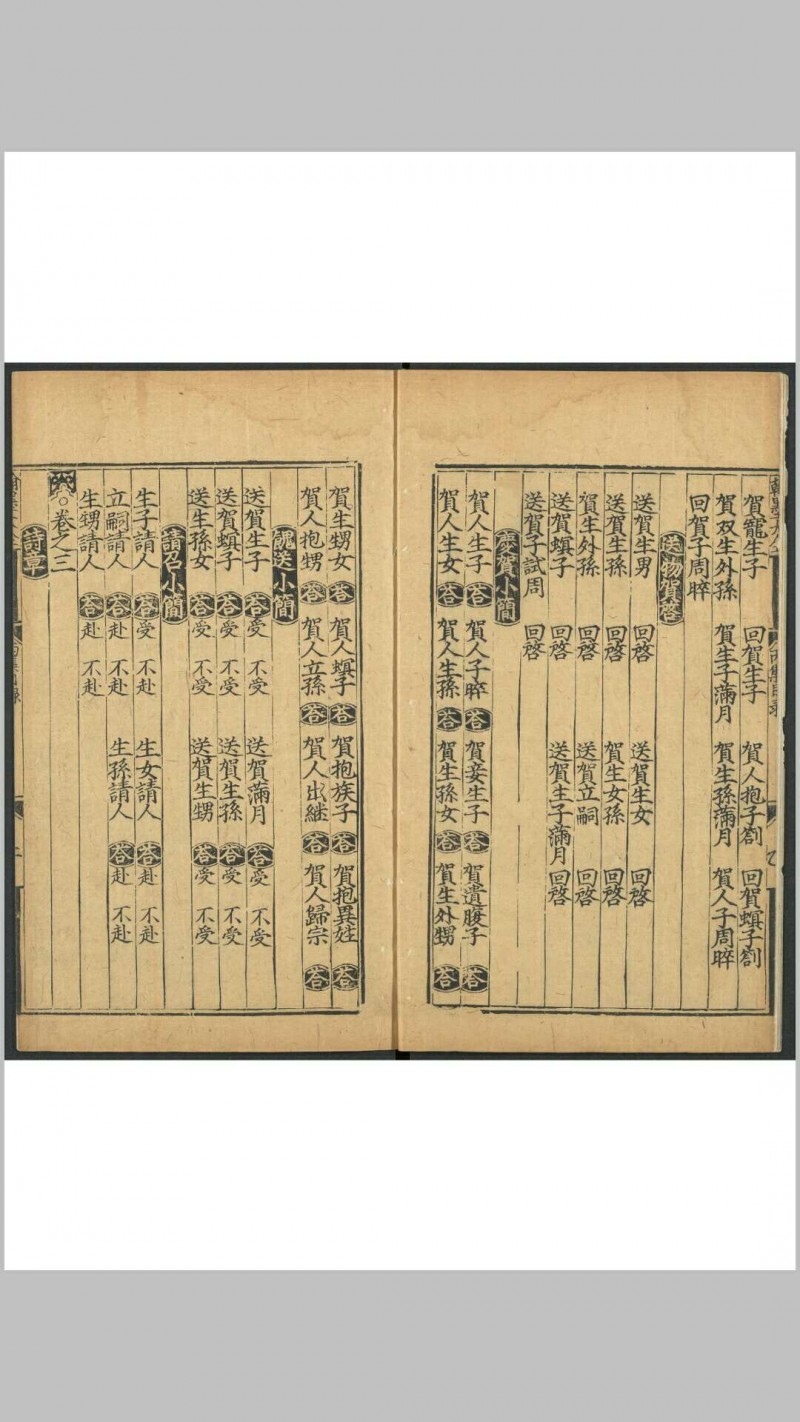 賀寵生子 回賀生子 賀人抱子劄 回賀螟子劄
賀双生外孫 賀生子滿月 賀生孫滿月 賀人子周晬
回賀子周晬
送物賀啓
送賀生男 回啓 送賀生女 回啓
送賀生孫 回啓 賀生女孫 回啓
賀生外孫 回啓 送賀立嗣 回啓
送賀螟子 回啓 送賀生子滿月 回啓
送賀子試周 回啓
慶賀小簡
賀人生子 答 賀人子晬 答 賀妾生子 答 賀遺腹子 答
賀人生女 答 賀人生孫 答 賀生孫女 答 賀生外甥 答
賀生甥女 答 賀人螟子 答 賀抱族子 答 賀抱異姓 答
賀人抱甥 答 賀人立孫 答 賀人出継 答 賀人歸宗 答
餽送小簡
送賀生子 答 受 不受 送賀滿月 答 受 不受
送賀螟子 答 受 不受 送賀生孫 答 受 不受
送生孫女 答 受 不受 送賀生甥 答 受 不受
請召小簡
生子請人 答 受 不赴 生女請人 答 赴 不赴
立嗣請人 答 赴 不赴 生孫請人 答 赴 不赴
生甥請人 答 赴 不赴
卷之三
詩章